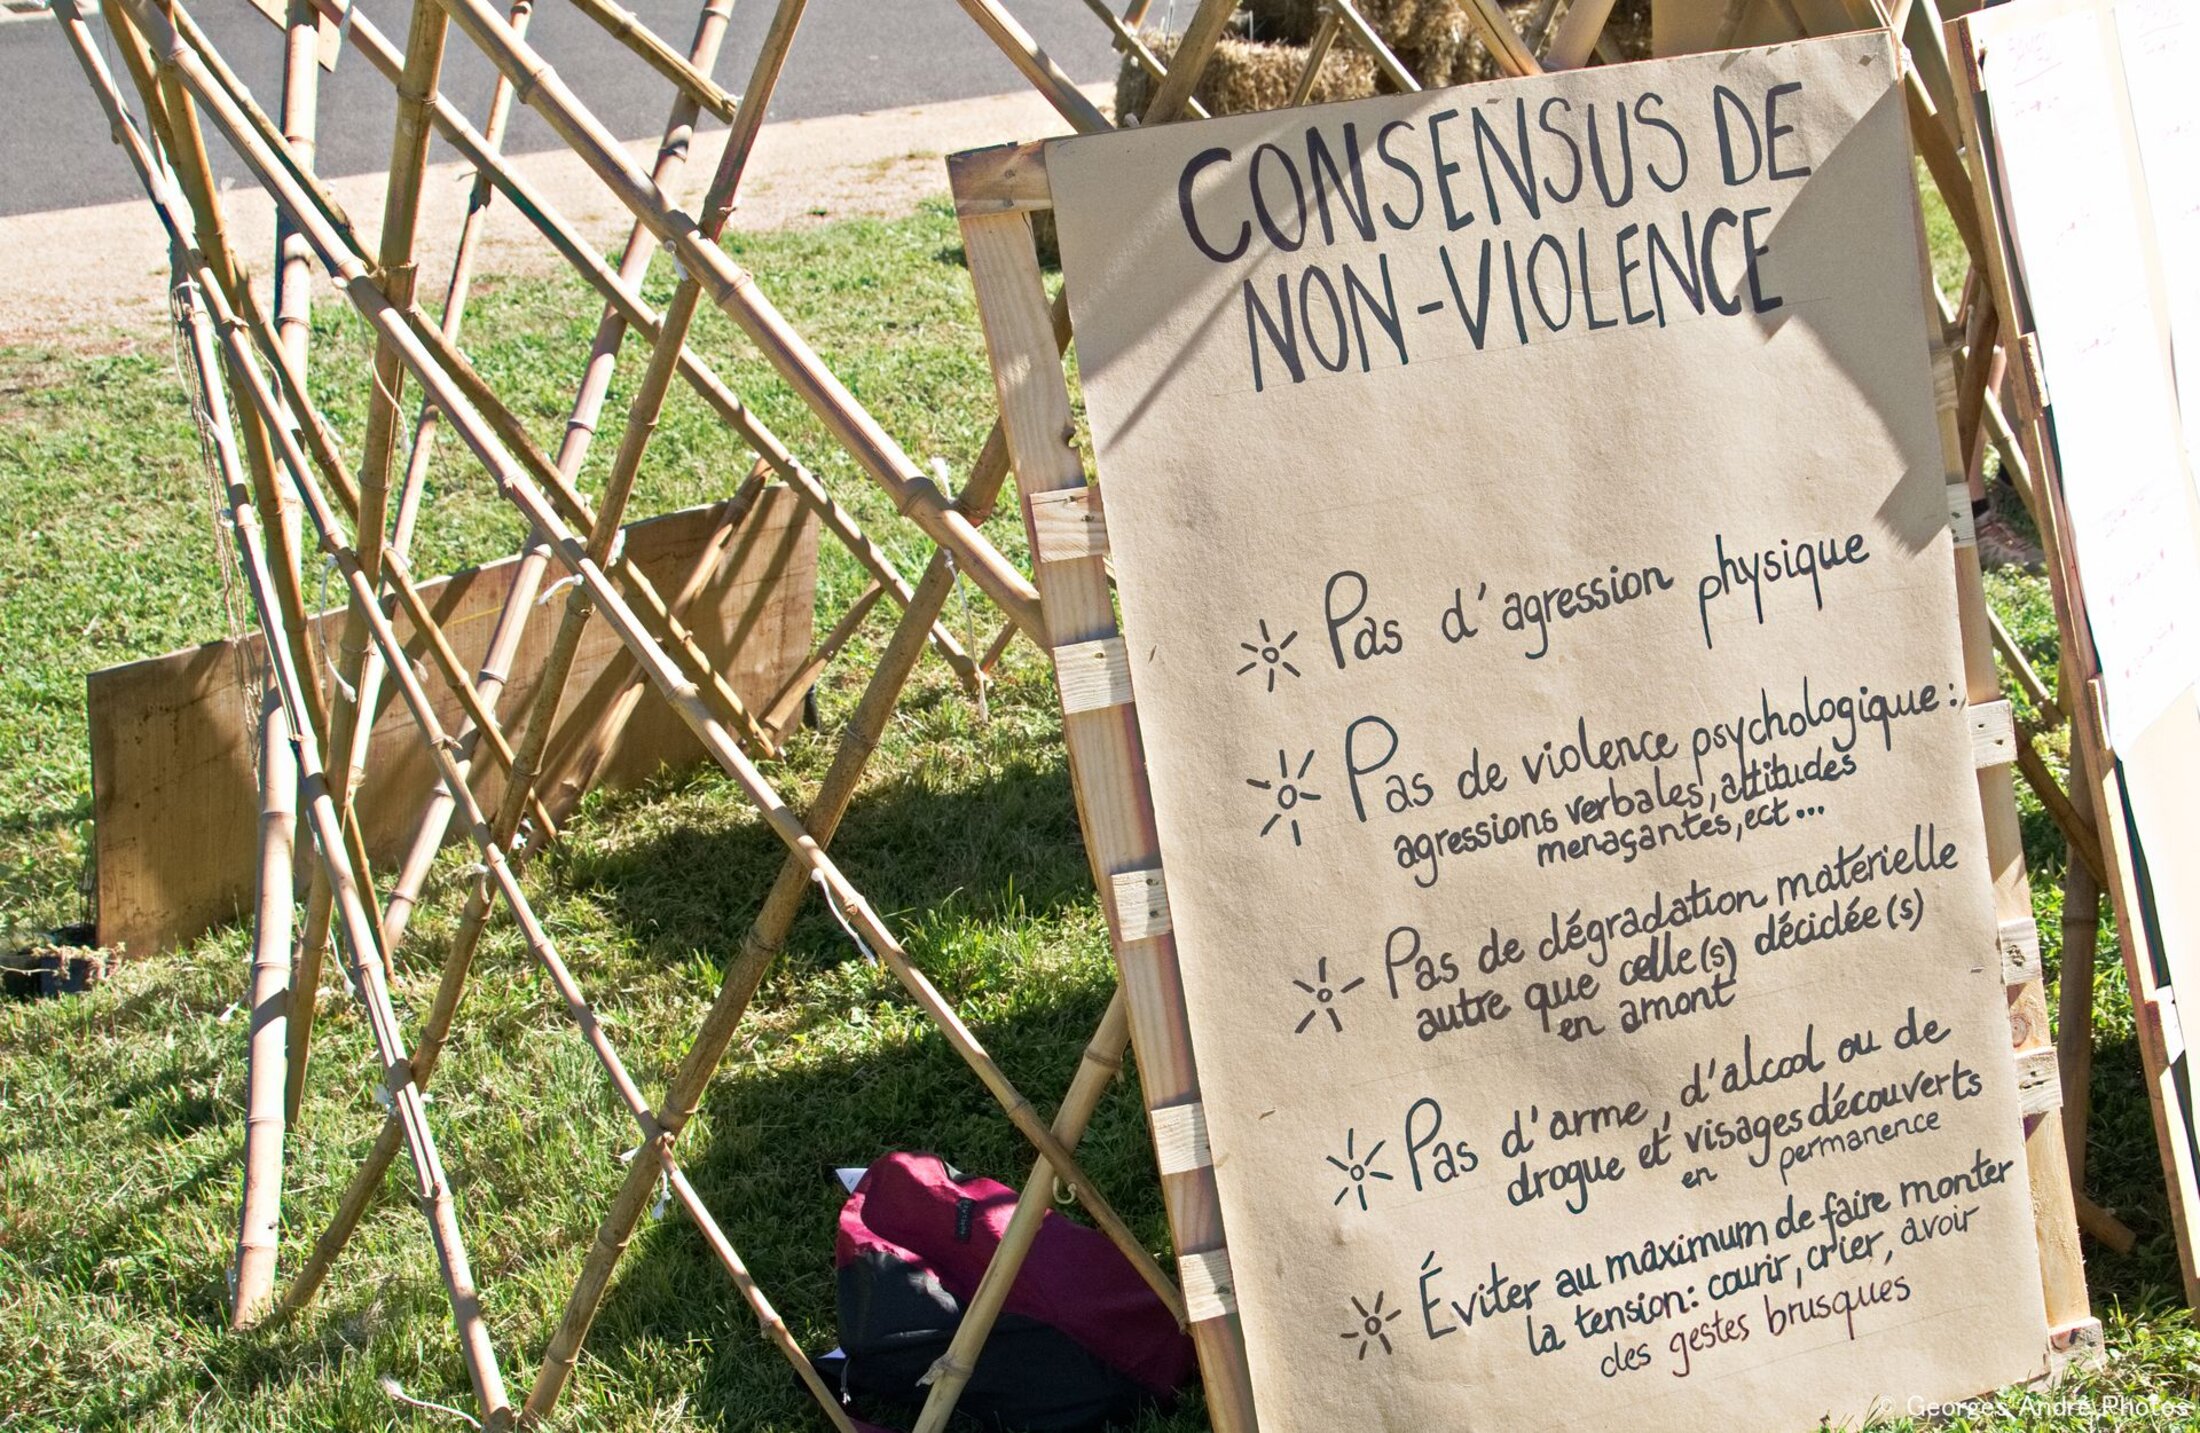 CONSENSUS DE
NON-VIOLENCE
Pas d'agression physique
Pas de violence psychologique :
agressions verbales, attitudes
menaçantes, ect...
Pas de dégradation matérielle
autre que celle(s) décidée(s)
en amont
Pas d'arme, d'alcool ou de
drogue et visages découverts
en permanence
Éviter au maximum de faire monter
la tension: courir, crier, avoir
des gestes brusques
© Georges André Photos